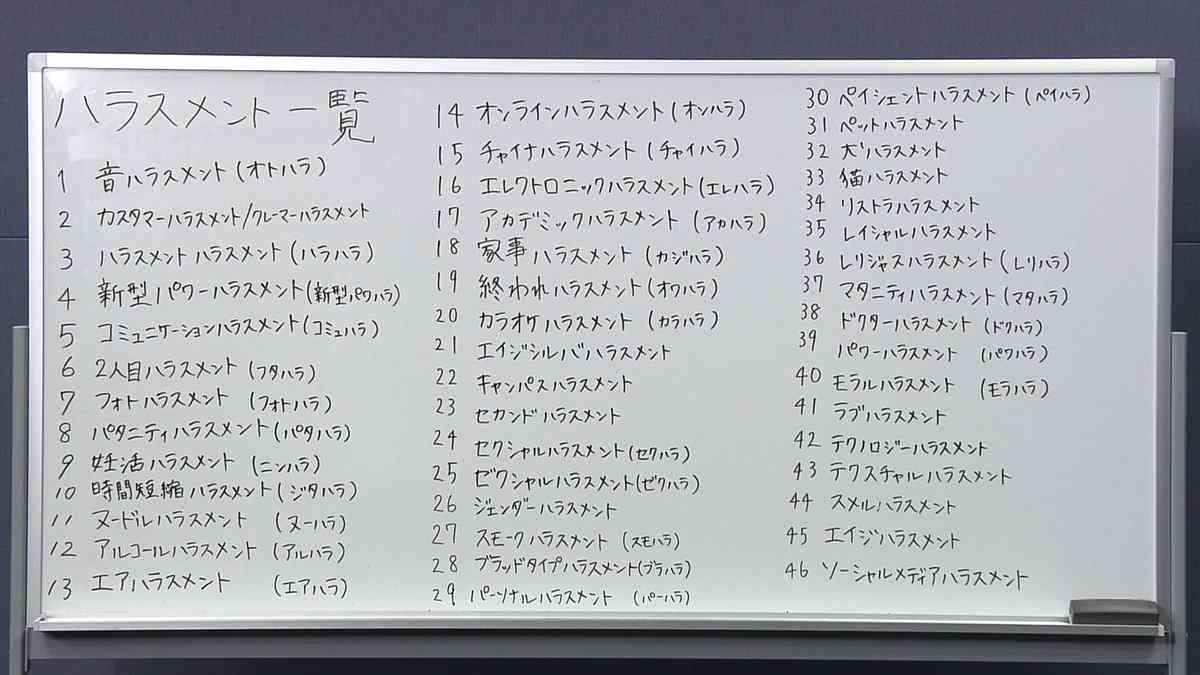 ハラスメント一覧
1 音ハラスメント(オトハラ)
2 カスタマーハラスメント/クレーマーハラスメント
3 ハラスメントハラスメント(ハラハラ)
4 新型パワーハラスメント(新型パワハラ)
5 コミュニケーションハラスメント(コミュハラ)
6 2人目ハラスメント(フタハラ)
7 フォトハラスメント(フォトハラ)
8 パタニティハラスメント(パタハラ)
9 妊活ハラスメント(ニンハラ)
10 時間短縮ハラスメント(ジタハラ)
11 ヌードルハラスメント(ヌーハラ)
12 アルコールハラスメント(アルハラ)
13 エアハラスメント(エアハラ)
14 オンラインハラスメント(オンハラ)
15 チャイナハラスメント(チャイハラ)
16 エレクトロニックハラスメント(エレハラ)
17 アカデミックハラスメント(アカハラ)
18 家事ハラスメント(カジハラ)
19 終われハラスメント(オワハラ)
20 カラオケハラスメント(カラハラ)
21 エイジシルバハラスメント
22 キャンパスハラスメント
23 セカンドハラスメント
24 セクシャルハラスメント(セクハラ)
25 ゼクシャルハラスメント(ゼクハラ)
26 ジェンダーハラスメント
27 スモークハラスメント(スモハラ)
28 ブラッドタイプハラスメント(ブラハラ)
29 パーソナルハラスメント(パーハラ)
30 ペイシェントハラスメント(ペイハラ)
31 ペットハラスメント
32 犬ハラスメント
33 猫ハラスメント
34 リストラハラスメント
35 レイシャルハラスメント
36 レリジャスハラスメント(レリハラ)
37 マタニティハラスメント(マタハラ)
38 ドクターハラスメント(ドクハラ)
39 パワーハラスメント(パワハラ)
40 モラルハラスメント(モラハラ)
41 ラブハラスメント
42 テクノロジーハラスメント
43 テクスチャルハラスメント
44 スメルハラスメント
45 エイジハラスメント
46 ソーシャルメディアハラスメント